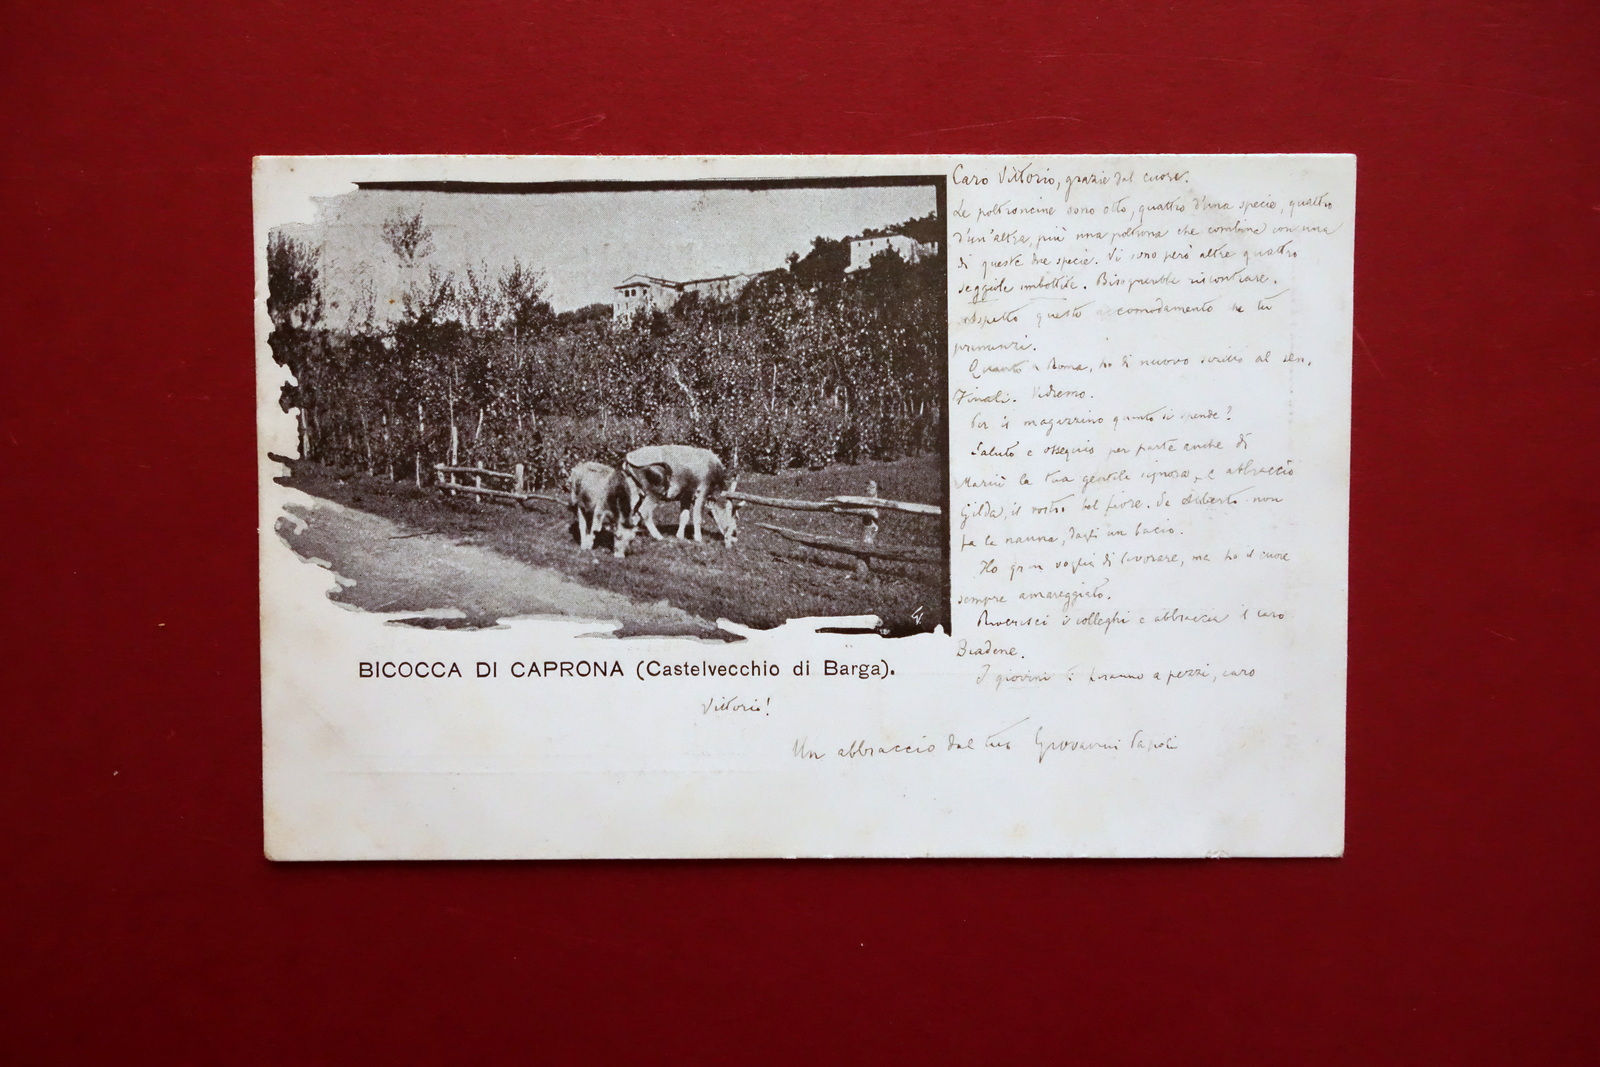 Caro Vittorio, grazie dal cuore.
Le poltroncine sono otto, quattro d'una specie, quattro
d'un'altra, più una poltrona che combina con una
di queste due specie. Vi sono però altre quattro
seggiole imbottite. Bisognerebbe riscontrare.
Aspetto questo accomodamento che tu
Quanto a Roma, ho di nuovo scritto al sen.
Finali. Vedremo.
Per il magazzino quanto si spende?
Saluto e ossequio per parte anche di
Mariù la tua gentile signora, e abbraccio
Gilda, il vostro bel fiore. Se Alberto non
fa la nanna, dagli un bacio.
Ho gran voglia di lavorare, ma ho il cuore
sempre amareggiato.
Riverisci i colleghi e abbraccia il caro
Biadene.
I giovini a pezzi, caro
Vittorio!
Un abbraccio dal tuo Giovanni Pascoli
BICOCCA DI CAPRONA (Castelvecchio di Barga).